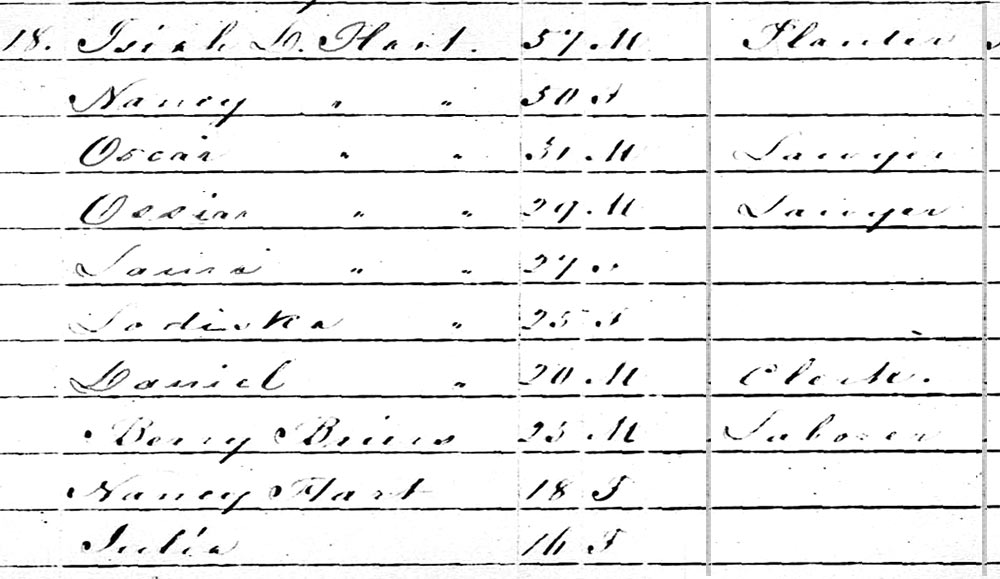 18. Isiah D. Hart. 57 M Planter
Nancy " " 50 F
Oscar " " 31 M Lawyer
Ossian " " 29 M Lawyer
Laura " " 27
Lodiska " 25 F
Daniel " 20 M Clerk.
Berry 25 M Laborer
Nancy Hart 18 F
Julia 16 F